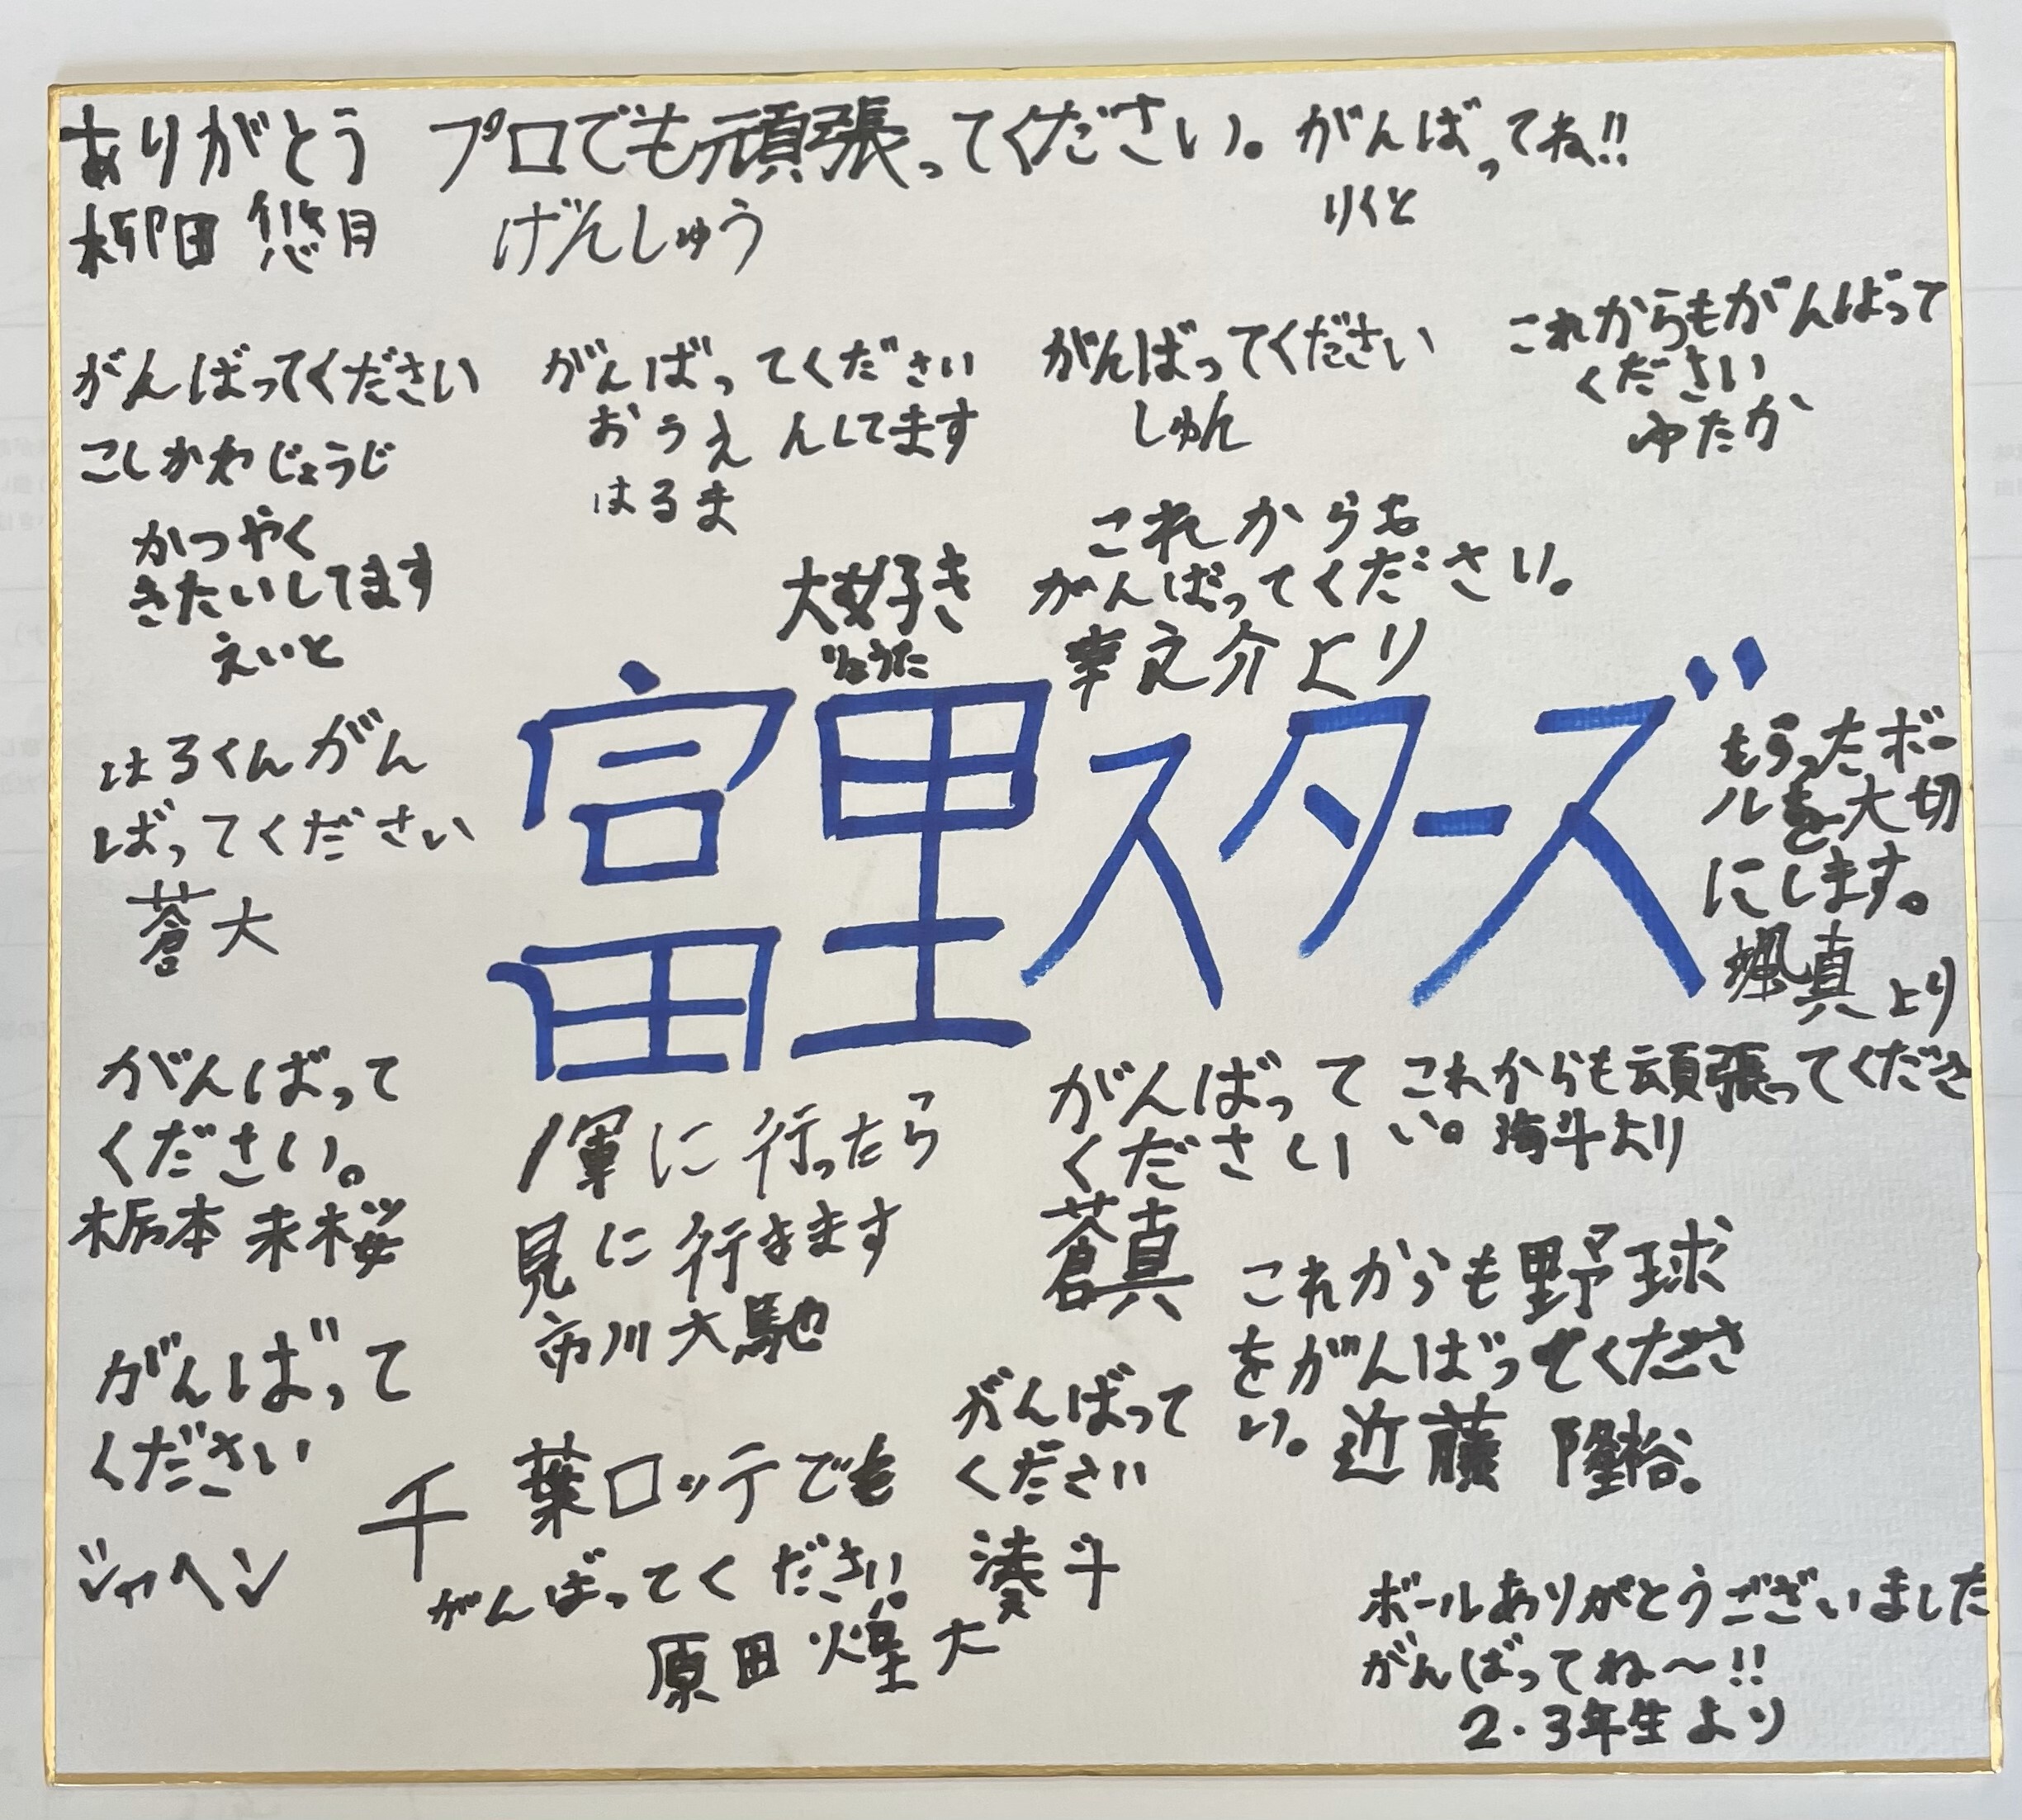 ありがとう
柳田 悠月
プロでも頑張ってください。
げんしゅう
がんばってね!!
りくと
がんばってください
こしかわじょうじ
がんばってください
おうえんしてます
はるま
がんばってください
しゅん
これからもがんばって
ください
ゆたか
かつやく
きたいしてます
えいと
大好き
りょうた
これからも
がんばってください。
幸之介より
富里スターズ
はるくんがん
ばってください
蒼大
もらったボー
ルを大切
にします。
颯真より
がんばって
ください。
栃本 未桜
1軍に行ったら
見に行きます
市川大馳
がんばって
ください
蒼真
これからも頑張ってくださ
い。海斗より
これからも野球
をがんばってくださ
い。近藤 隆裕。
がんばって
ください
ジャヘン
千葉ロッテでも
がんばってください。
原田煌大
がんばって
ください
湊斗
ボールありがとうございました
がんばってね〜!!
2・3年生より